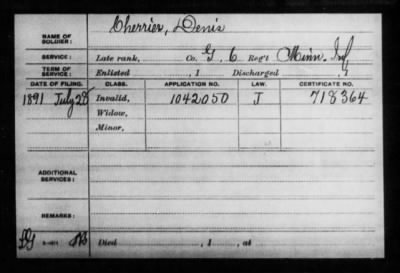 Cherrier, Denis
NAME OF SOLDIER:
SERVICE: Late rank, Co. G, 6 Reg't Minn. Inf
TERM OF SERVICE: Enlisted , 1 Discharged , 1
DATE OF FILING. CLASS. APPLICATION NO. LAW. CERTIFICATE NO.
1891 July 28 Invalid, 1042050 J 718364
Widow,
Minor,
ADDITIONAL SERVICES:
REMARKS:
Died , 1 , at